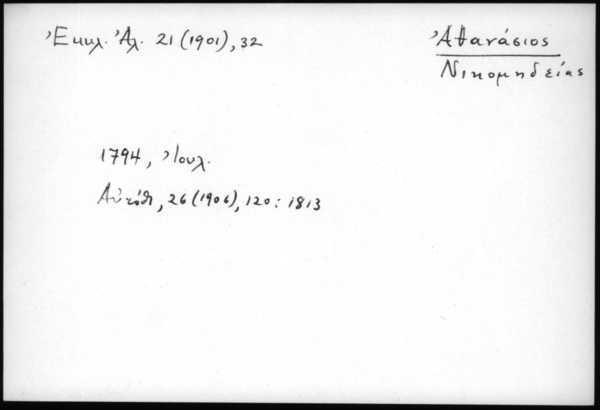 Ἐκκλ. Ἀλ. 21 (1901), 32
Ἀθανάσιος
Νικομηδείας
1794, Ἰουλ.
Αὐτόθι, 26 (1906), 120: 1813